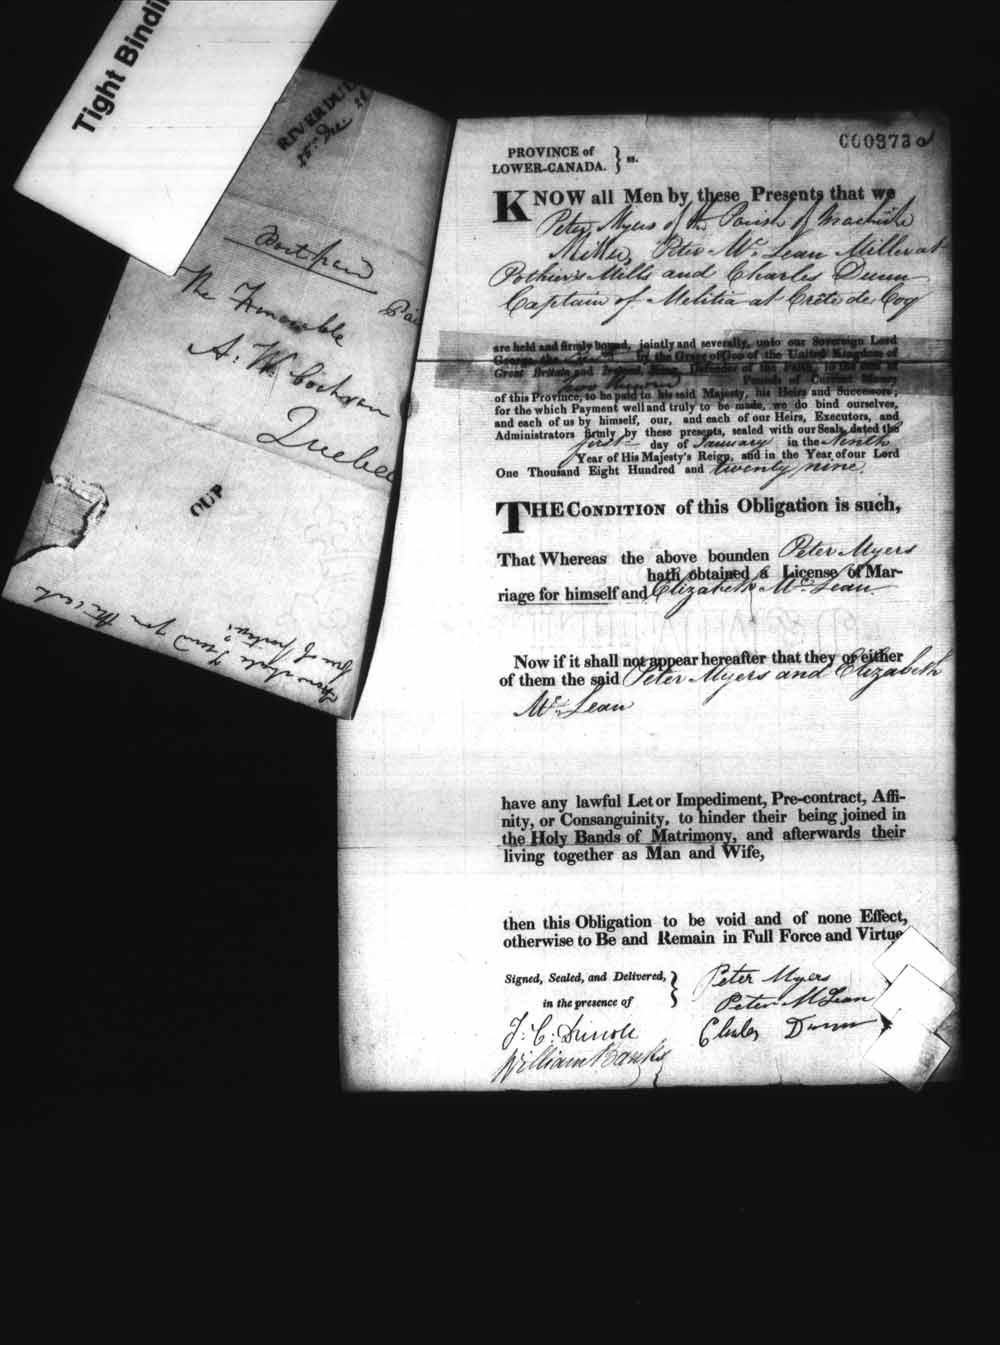 Tight Bindi
RIVER DU L
Post paid
Paid
The Honorable
A. W. Cochran
Quebec
PROVINCE of
LOWER-CANADA. } ss.
KNOW all Men by these Presents that we
Peter Myers of the Parish of Machiche
Miller, Peter Mc Lean Miller at
Pothier's Mills and Charles Dunn
Captain of Melitia at Crête de Coq
are held and firmly bound, jointly and severally, unto our Sovereign Lord
George the by the Grace of GOD of the United Kingdom of
Great Britain and Ireland, King, Defender of the Faith, in the sum of
two thousand Pounds of Current Money
of this Province, to be paid to his said Majesty, his Heirs and Successors;
for the which Payment well and truly to be made, we do bind ourselves,
and each of us by himself, our, and each of our Heirs, Executors, and
Administrators firmly by these presents, sealed with our Seals, dated the
first day of January in the Ninth
Year of His Majesty's Reign, and in the Year of our Lord
One Thousand Eight Hundred and twenty nine.
THE CONDITION of this Obligation is such,
That Whereas the above bounden Peter Myers
hath obtained a License of Mar-
riage for himself and Elizabeth Mc Lean
Now if it shall not appear hereafter that they or either
of them the said Peter Myers and Elizabeth
Mc Lean
have any lawful Let or Impediment, Pre-contract, Affi-
nity, or Consanguinity, to hinder their being joined in
the Holy Bands of Matrimony, and afterwards their
living together as Man and Wife,
then this Obligation to be void and of none Effect,
otherwise to Be and Remain in Full Force and Virtue
Signed, Sealed, and Delivered, }
in the presence of
Peter Myers
Peter McLean
Charles Dunn
William Banks